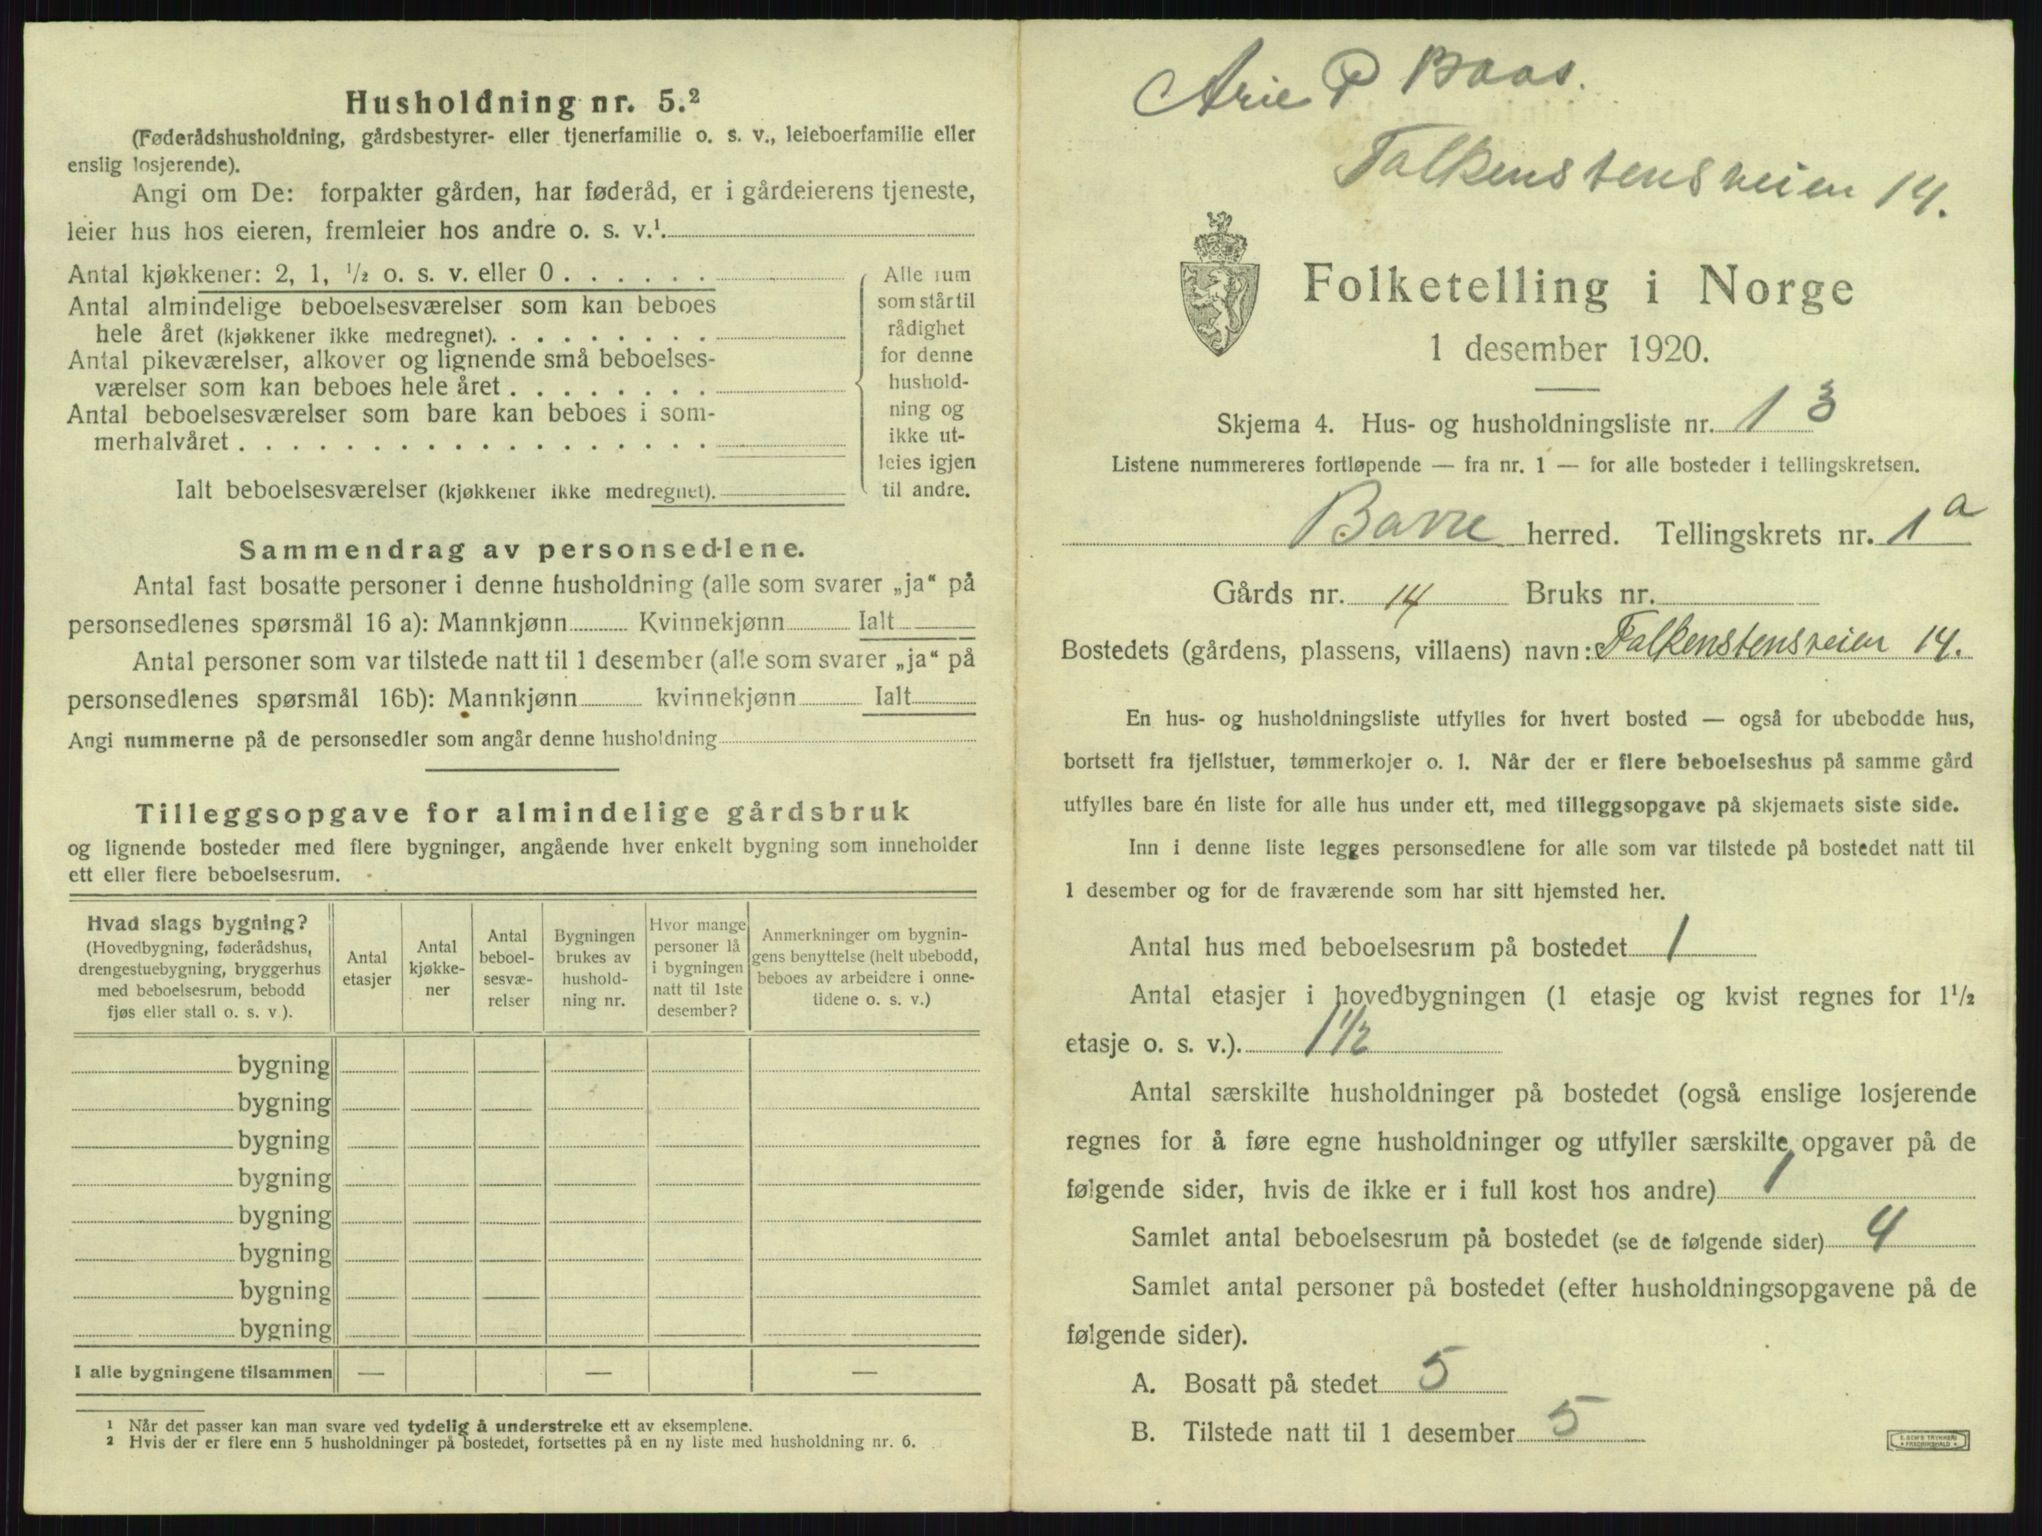 Husholdning nr. 5.²
(Føderådshusholdning, gårdsbestyrer- eller tjenerfamilie o. s. v., leieboerfamilie eller
enslig losjerende).
Angi om De: forpakter gården, har føderåd, er i gårdeierens tjeneste,
leier hus hos eieren, fremleier hos andre o. s. v.¹
Antal kjøkkener: 2, 1, ½ o. s. v. eller 0 . . . . . .
Antal almindelige beboelsesværelser som kan beboes
hele året (kjøkkener ikke medregnet). . . . . . . . .
Antal pikeværelser, alkover og lignende små beboelses-
værelser som kan beboes hele året . . . . . . . .
Antal beboelsesværelser som bare kan beboes i som-
merhalvåret . . . . . . . . . . . . . . . . . .
Ialt beboelsesværelser (kjøkkener ikke medregnet).
Alle rum
som står til
rådighet
for denne
hushold-
ning og
ikke ut-
leies igjen
til andre.
Sammendrag av personsedlene.
Antal fast bosatte personer i denne husholdning (alle som svarer „ja“ på
personsedlenes spørsmål 16 a): Mannkjønn Kvinnekjønn Ialt
Antal personer som var tilstede natt til 1 desember (alle som svarer „ja“ på
personsedlenes spørsmål 16b): Mannkjønn kvinnekjønn Ialt
Angi nummerne på de personsedler som angår denne husholdning
Tilleggsopgave for almindelige gårdsbruk
og lignende bosteder med flere bygninger, angående hver enkelt bygning som inneholder
ett eller flere beboelsesrum.
Hvad slags bygning?
(Hovedbygning, føderådshus,
drengestuebygning, bryggerhus
med beboelsesrum, bebodd
fjøs eller stall o. s. v.).
Antal
etasjer
Antal
kjøkke-
ner
Antal
beboel-
sesvæ-
relser
Bygningen
brukes av
hushold-
ning nr.
Hvor mange
personer lå
i bygningen
natt til 1ste
desember?
Anmerkninger om bygnin-
gens benyttelse (helt ubebodd,
beboes av arbeidere i onne-
tidene o. s. v.)
bygning
bygning
bygning
bygning
bygning
bygning
bygning
bygning
I alle bygningene tilsammen — — —
¹ Når det passer kan man svare ved tydelig å understreke ett av eksemplene.
² Hvis der er flere enn 5 husholdninger på bostedet, fortsettes på en ny liste med husholdning nr. 6.
Arie P Baas.
Falkenstensveien 14.
Folketelling i Norge
1 desember 1920.
Skjema 4. Hus- og husholdningsliste nr. 13
Listene nummereres fortløpende — fra nr. 1 — for alle bosteder i tellingskretsen.
Borre herred. Tellingskrets nr. 1a
Gårds nr. 14 Bruks nr.
Bostedets (gårdens, plassens, villaens) navn: Falkenstensveien 14.
En hus- og husholdningsliste utfylles for hvert bosted — også for ubebodde hus,
bortsett fra fjellstuer, tømmerkojer o. l. Når der er flere beboelseshus på samme gård
utfylles bare én liste for alle hus under ett, med tilleggsopgave på skjemaets siste side.
Inn i denne liste legges personsedlene for alle som var tilstede på bostedet natt til
1 desember og for de fraværende som har sitt hjemsted her.
Antal hus med beboelsesrum på bostedet 1
Antal etasjer i hovedbygningen (1 etasje og kvist regnes for 1½
etasje o. s. v.). 1½
Antal særskilte husholdninger på bostedet (også enslige losjerende
regnes for å føre egne husholdninger og utfyller særskilte opgaver på de
følgende sider, hvis de ikke er i full kost hos andre) 1
Samlet antal beboelsesrum på bostedet (se de følgende sider) 4
Samlet antal personer på bostedet (efter husholdningsopgavene på de
følgende sider).
A. Bosatt på stedet 5
B. Tilstede natt til 1 desember 5
E. SEM'S TRYKKERI
FREDRIKSHALD